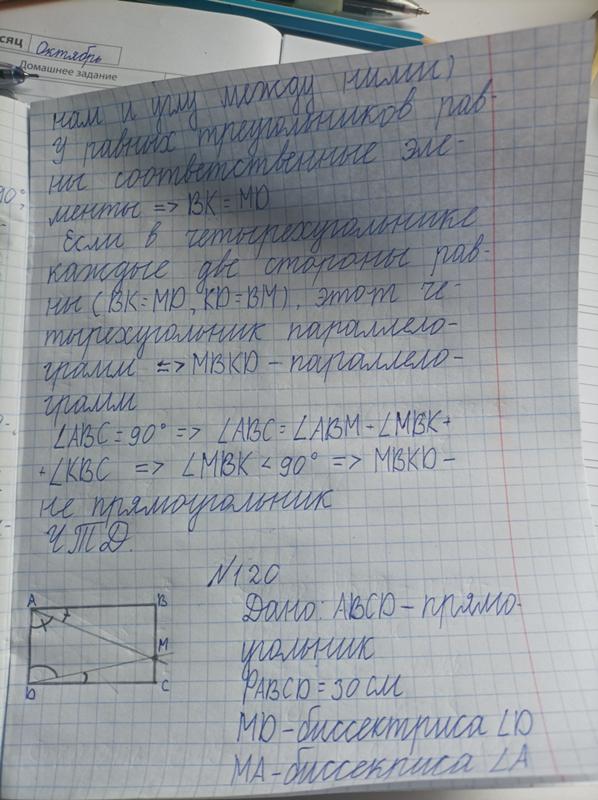 сяц Октябрь
Домашнее задание
нам и углу между ними)
У равных треугольников рав-
ны соответственные эле-
менты => BK = MD
Если в четырехугольнике
каждые две стороны рав-
ны (BK=MD, KD=BM), этот че-
тырехугольник параллело-
грамм => MBKD - параллело-
грамм
∠ABC = 90° => ∠ABC = ∠ABM - ∠MBK +
+ ∠KBC => ∠MBK < 90° => MBKD -
не прямоугольник
ЧТД.
N120
Дано: ABCD - прямо-
угольник
PABCD = 30 см
MD - биссектриса ∠D
MA - биссекриса ∠A
A B
M
D C
90°;